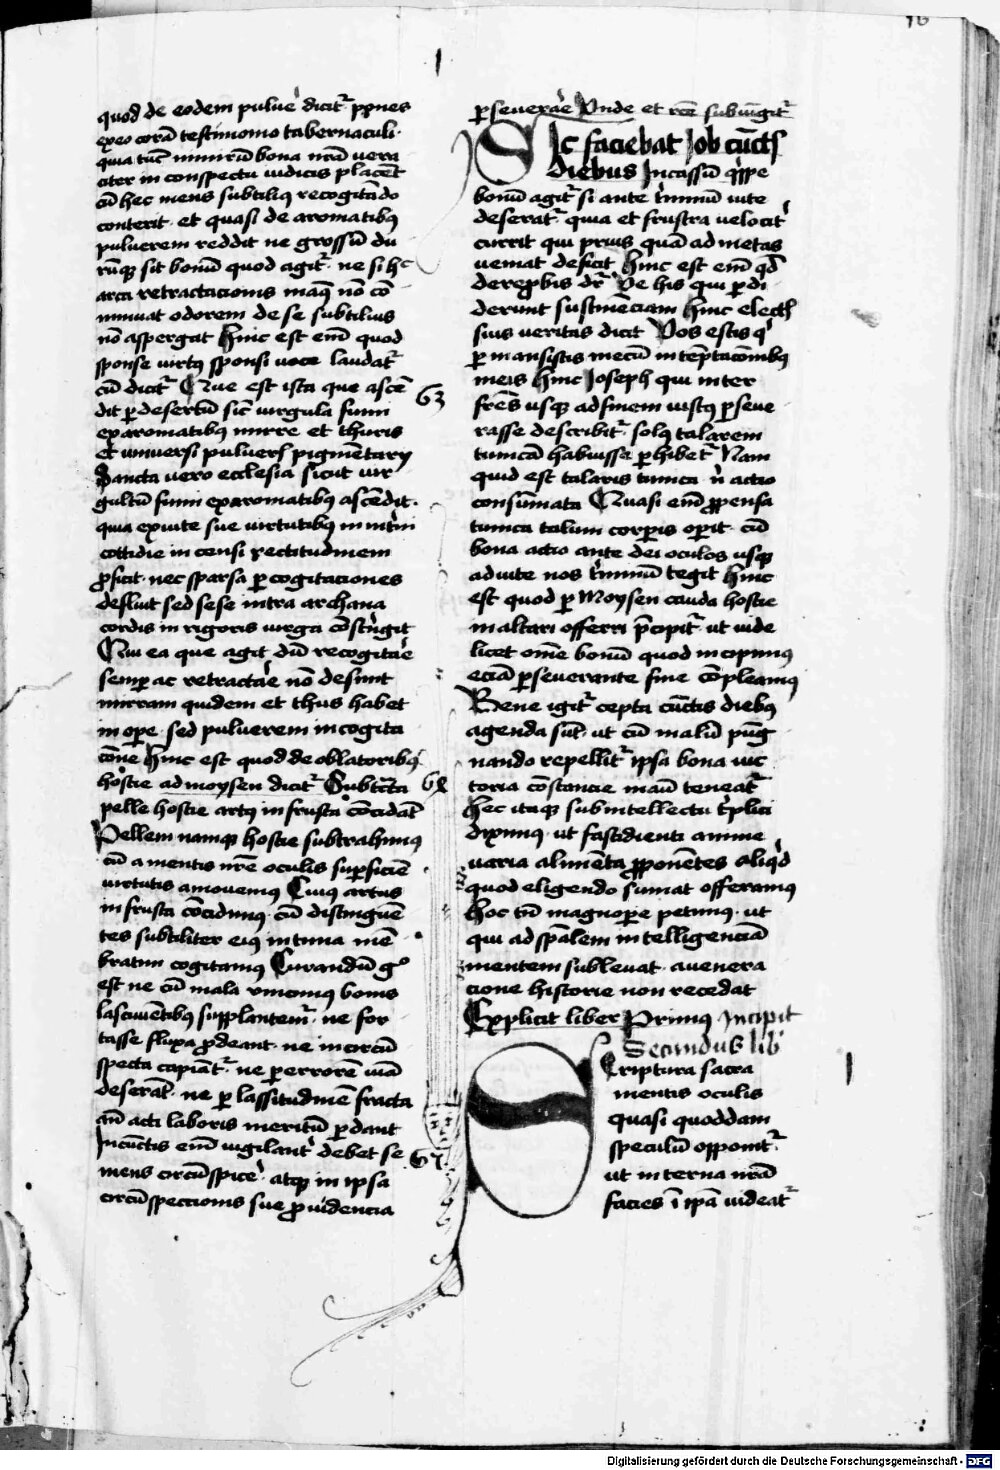 16
quod de eodem pulue͛ dicit᷑ p̱ones
exeo corā testimonio tabernaculi·
quia tūc nimirū bona nrā vera
citer in conspectu iudicis placēt
cū hec mens subtilius recogitādo
conterit· et quasi de aromatibꝫ
puluerem reddit ne grossū du
rūqꝫ sit bonū quod agit᷑· ne si hͨ
arta retractacionis maṇꝫ nō cō
minuat odorem de se subtilius
nō aspergat Hinc est em̄ quod
sponse virtꝰ sponsi voce laudat᷑
cū dicit᷑ Que est ista que ascē
dit ꝑ desertū sic̄ virgula fumi
ex aromatibꝫ mirre et thuris
et vniuersi pulueris pigmētarij
Sancta vero ecclesia sicut vir
gultū fumi ex aromatibꝫ ascēdit·
quia ex vite sue virtutibꝫ in
cottidie in censi rectitudinem
ꝓficit· nec sparsa ꝑ cogitaciones
defluit sed sese intra archana
cordis in rigoris virga cōstͥngit
Qui ea que agit dū recogita͛e
semꝑ ac retracta͛e nō desinit
mirram quidem et thus habet
in oꝑe· sed puluerem in cogita
cōne Hinc est quod de oblatoribꝫ
hostie ad moysen dicit᷑ Subtᷓcta
pelle hostie artꝰ in frusta cōcidāt
Pellem namqꝫ hostie subtrahimꝰ
cū a mentis nr̄e oculis suꝑficiē
virtutis amouemꝰ Cuius artus
in frusta cōcidimꝰ cū distinguē
tes subtiliter eiꝰ intima mē
bratim cogitamꝰ Curandū gͦ
est ne cū mala vincimꝰ bonis
lasciuiētibꝫ supplantem᷑· ne for
tasse fluxa ꝓdeant· ne incircū
specta capiāt᷑· ne ꝑ errorē viā
deserāt· ne ꝑ lassitudinē fracta
an̄ acti laboris meritū ꝑdant
Incūctis em̄ vigilant͛ debet se
mens circūspice͛· atqꝫ in ipsa
circūspectionis sue ꝓuidencia
63
64
67
ꝑseuera͛e Vnde et rc̄e subiūgit᷑
Sic faciebat Iob cūctis
diebus Incassū qͥppe
bonū agit᷑ si ante tͥminū vite
deserat᷑· quia et frustra velocit͛
currit qui prius quā ad metas
veniat deficit Hinc est em̄ qd̄
de reꝓbis dr̄ Ve his qui ꝑdi
derunt sustinēciam Hinc electis
suis veritas dicit Vos estis qͥ
ꝑmansistis mecū in tēptacōnibꝫ
meis Hinc Ioseph qui inter
frēs vsqꝫ ad finem iustꝰ ꝑseue
rasse describit᷑· solꝰ talarem
tunicā habuisse ꝑhibet᷑ Nam
quid est talaris tunica n̄ actio
consūmata Quasi em̄ ꝓpensa
tunica talum corꝑis oꝑit· cū
bona actio ante dei oculos vsqꝫ
ad vite nos tͥminū tegit Hinc
est quod ꝑ Moysen cauda hostie
in altari offerri p̄cipit᷑ ut vide
licet omē bonū quod incipimꝰ
eciā ꝑseuerante fine cōpleamꝰ
Bene igit᷑ cepta cūctis diebꝰ
agenda sūt· ut cū malū pūg
nando repellit᷑ ipsa bona vic
toria cōstancie manu teneat᷑
Hec itaqꝫ sub intellectu tͥplici
diximꝰ· ut fastidienti anime
varia alimēta ꝓponētes aliqͥd
quod eligendo sumat offeramꝰ
Hoc tn̄ magnoꝑe petimꝰ· ut
qui ad spālem intelligenciā
mentem subleuat· a venera
cione historie non recedat
Explicit liber Primꝰ Incipit
Secundus lib͛
Scriptura sacra
mentis oculis
quasi quoddam
speculū opponit᷑
ut interna nrā
facies ī ipā videat᷑
Digitalisierung gefördert durch die Deutsche Forschungsgemeinschaft - DFG